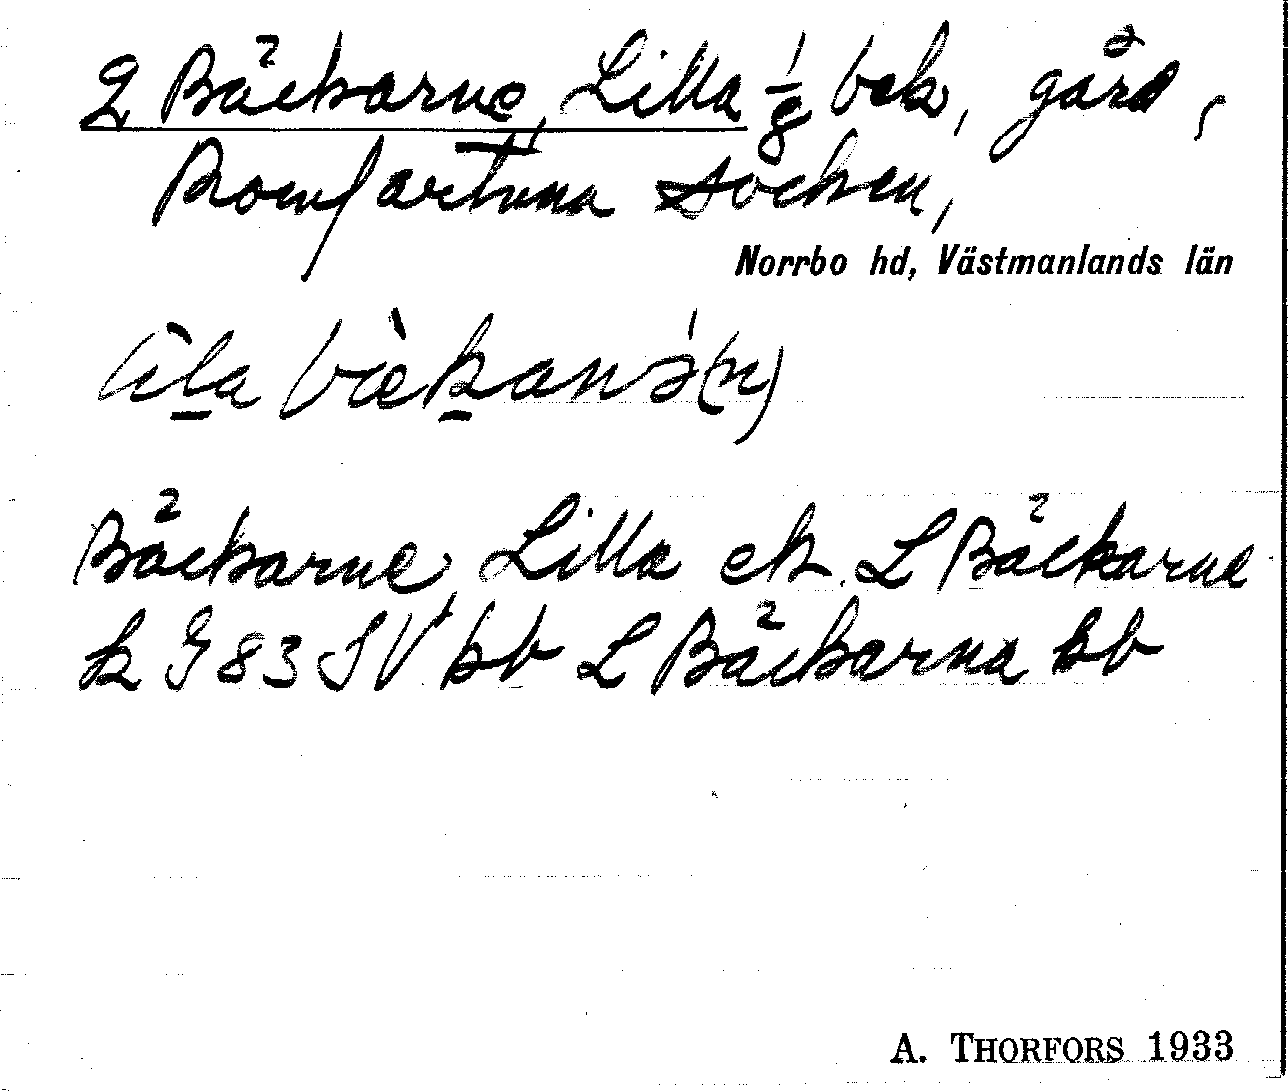 2 Bäckarne, Lilla 1/8 bek, gård,
Romfartuna socken,
Norrbo hd, Västmanlands län
Bäckarne, Lilla ek. L Bäckarne
k G 83 SV bb L Bäckarna bb
A. THORFORS 1933